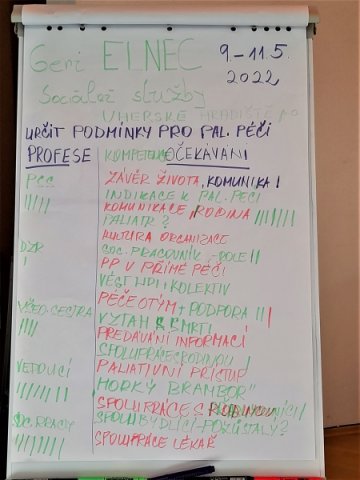 Geri ELNEC 9-11.5.
2022
Sociální služby
UHERSKÉ HRADIŠTĚ
URČIT PODMÍNKY PRO PAL. PÉČI
PROFESE KOMPETENCE OČEKÁVÁNÍ
PSS ZÁVĚR ŽIVOTA, KOMUNIKA I
IIIII INDIKACE K PAL. PÉČI
KOMUNIKACE, RODINA IIIIIII
PALIATR?
KULTURA ORGANIZACÍ
DZR SOC. PRACOVNÍK - ROLE II
I PP V PŘÍMÉ PÉČI
VÉST LIDI, KOLEKTIV
PÉČE O TÝM + PODPORA III
VŠEO. SESTRA VZTAH K SMRTI
IIII PŘEDÁVÁNÍ INFORMACÍ
SPOLUPRÁCE S RODINOU I
VEDOUCÍ PALIATIVNÍ PŘÍSTUP
IIIIIII "HORKÝ BRAMBOR"
SPOLUPRÁCE S
SPOLUBYDLÍCÍ - POZŮSTALÝ?
SOC. PRACOV
IIIIIIII SPOLUPRÁCE LÉKAŘ